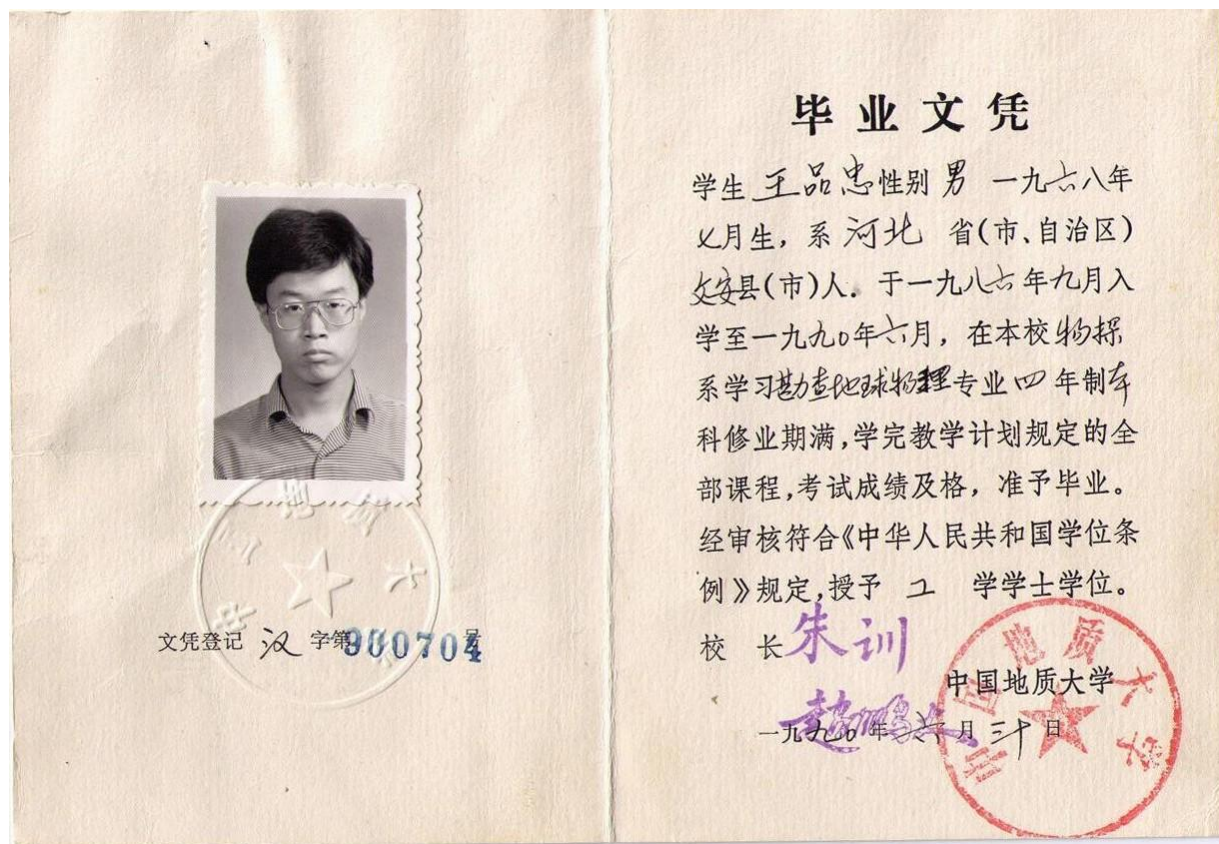 文凭登记 汉 字第900704号
毕业文凭
学生 王品忠 性别 男 一九六八年
七月生，系 河北 省(市、自治区)
文安县(市)人．于一九八六年九月入
学至一九九〇年六月，在本校物探
系学习勘查地球物理专业四年制本
科修业期满，学完教学计划规定的全
部课程，考试成绩及格，准予毕业。
经审核符合《中华人民共和国学位条
例》规定，授予 工 学学士学位。
校 长 朱训
赵鹏大
中国地质大学
一九九〇年六月三十日
中国地质大学
中国地质大学